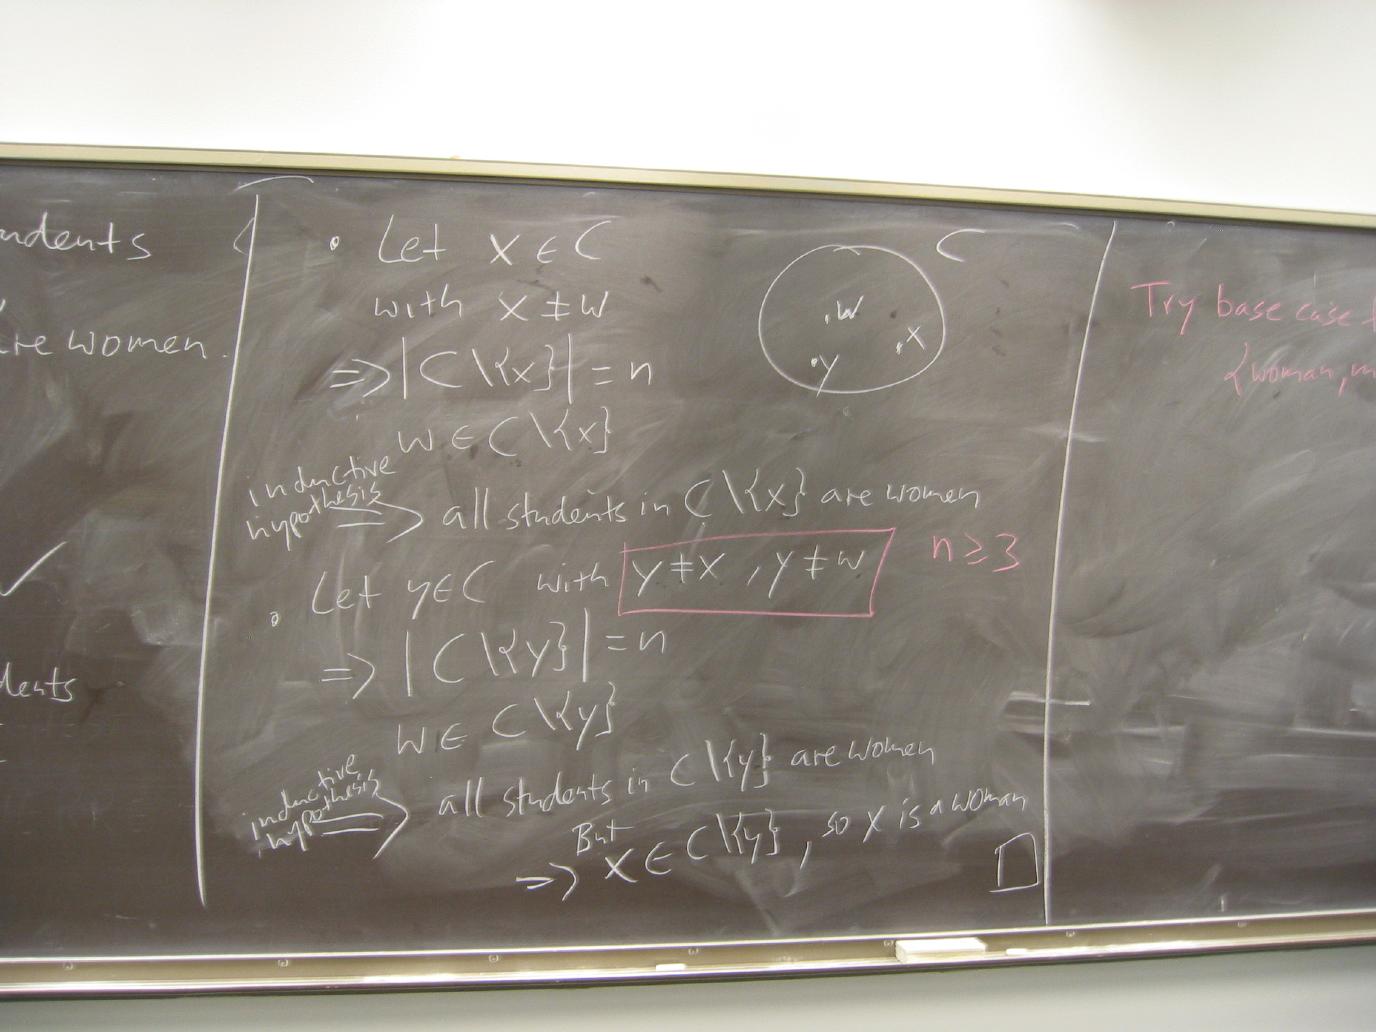 students
are women.
• Let x ∈ C
with x ≠ w
⇒ |C\{x}| = n
w ∈ C\{x}
inductive
hypothesis
⇒ all students in C\{x} are women
• Let y ∈ C with y ≠ x , y ≠ w
n ≥ 3
⇒ |C\{y}| = n
w ∈ C\{y}
inductive
hypothesis
⇒ all students in C\{y} are women
But
⇒ x ∈ C\{y}, so x is a woman
C
.w
.x
.y
Try base case
{woman, m
✓
dents